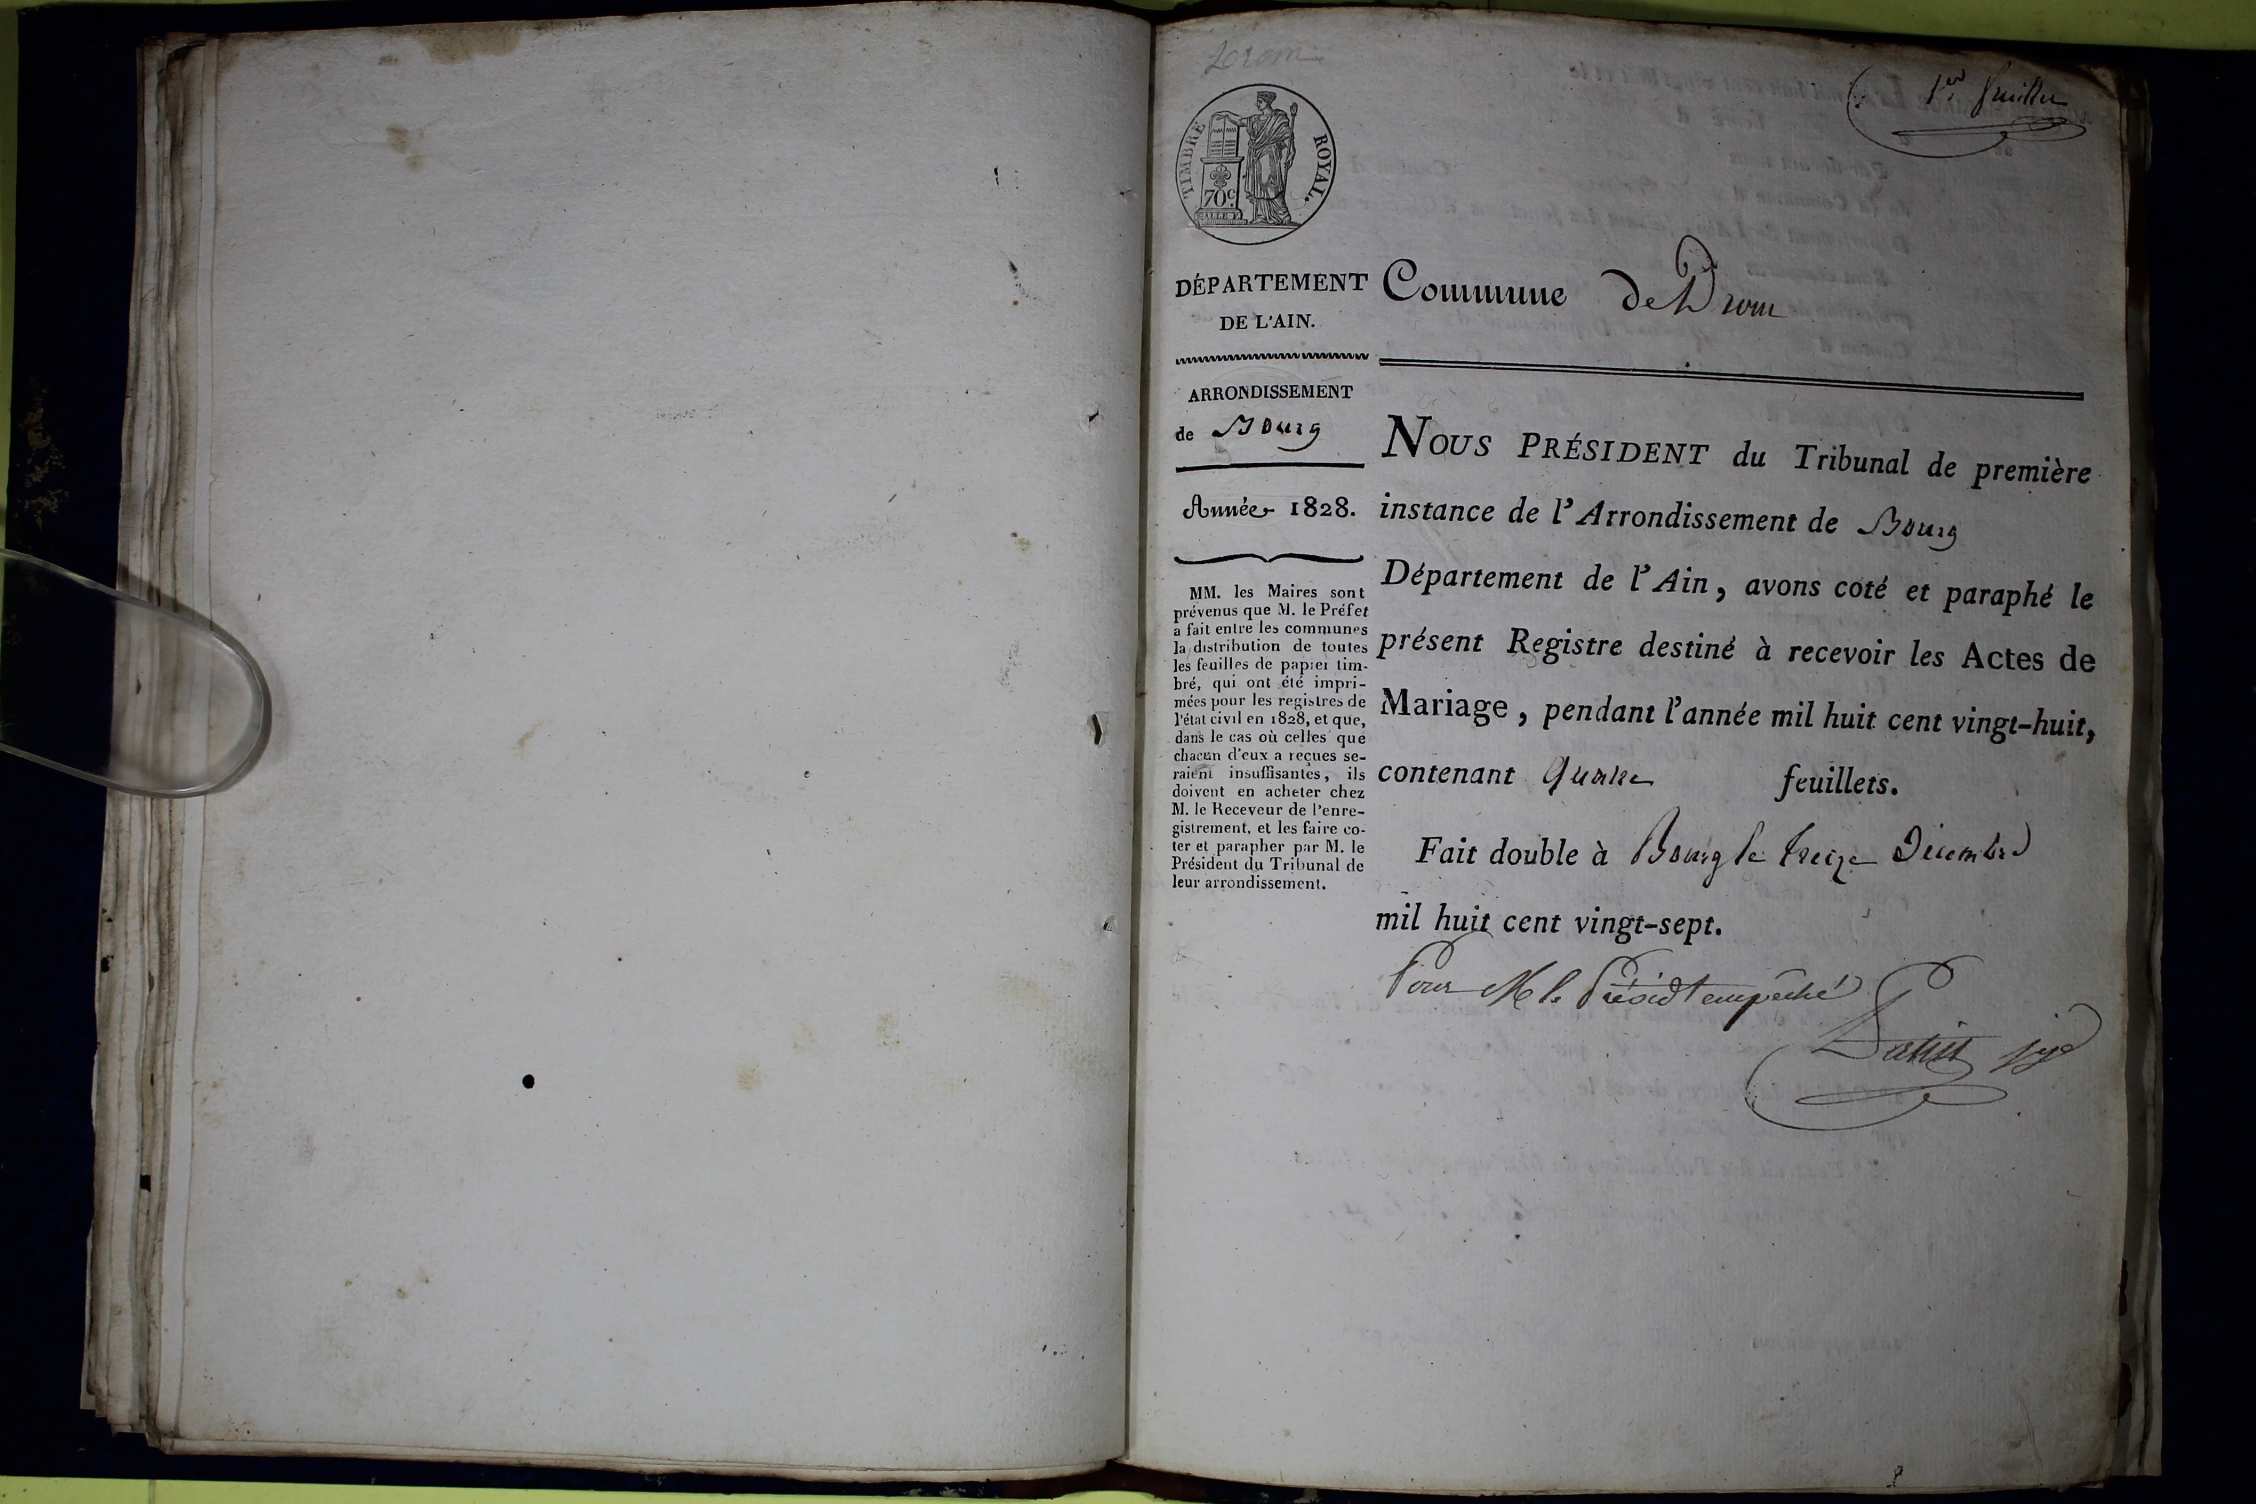 Drom
1er feuillet
TIMBRE ROYAL.
70 c.
DÉPARTEMENT
DE L'AIN.
ARRONDISSEMENT
de Bourg
Année 1828.
MM. les Maires sont
prévenus que M. le Préfet
a fait entre les communes
la distribution de toutes
les feuilles de papier tim-
bré, qui ont été impri-
mées pour les registres de
l'état civil en 1828, et que,
dans le cas où celles que
chacun d'eux a reçues se-
raient insuffisantes, ils
doivent en acheter chez
M. le Receveur de l'enre-
gistrement, et les faire co-
ter et parapher par M. le
Président du Tribunal de
leur arrondissement.
Commune de Drom
NOUS PRÉSIDENT du Tribunal de première
instance de l'Arrondissement de Bourg
Département de l'Ain, avons coté et paraphé le
présent Registre destiné à recevoir les Actes de
Mariage, pendant l'année mil huit cent vingt-huit,
contenant quatre feuillets.
Fait double à Bourg le treize Décembre
mil huit cent vingt-sept.
Pour M le Présidt empêché
juge